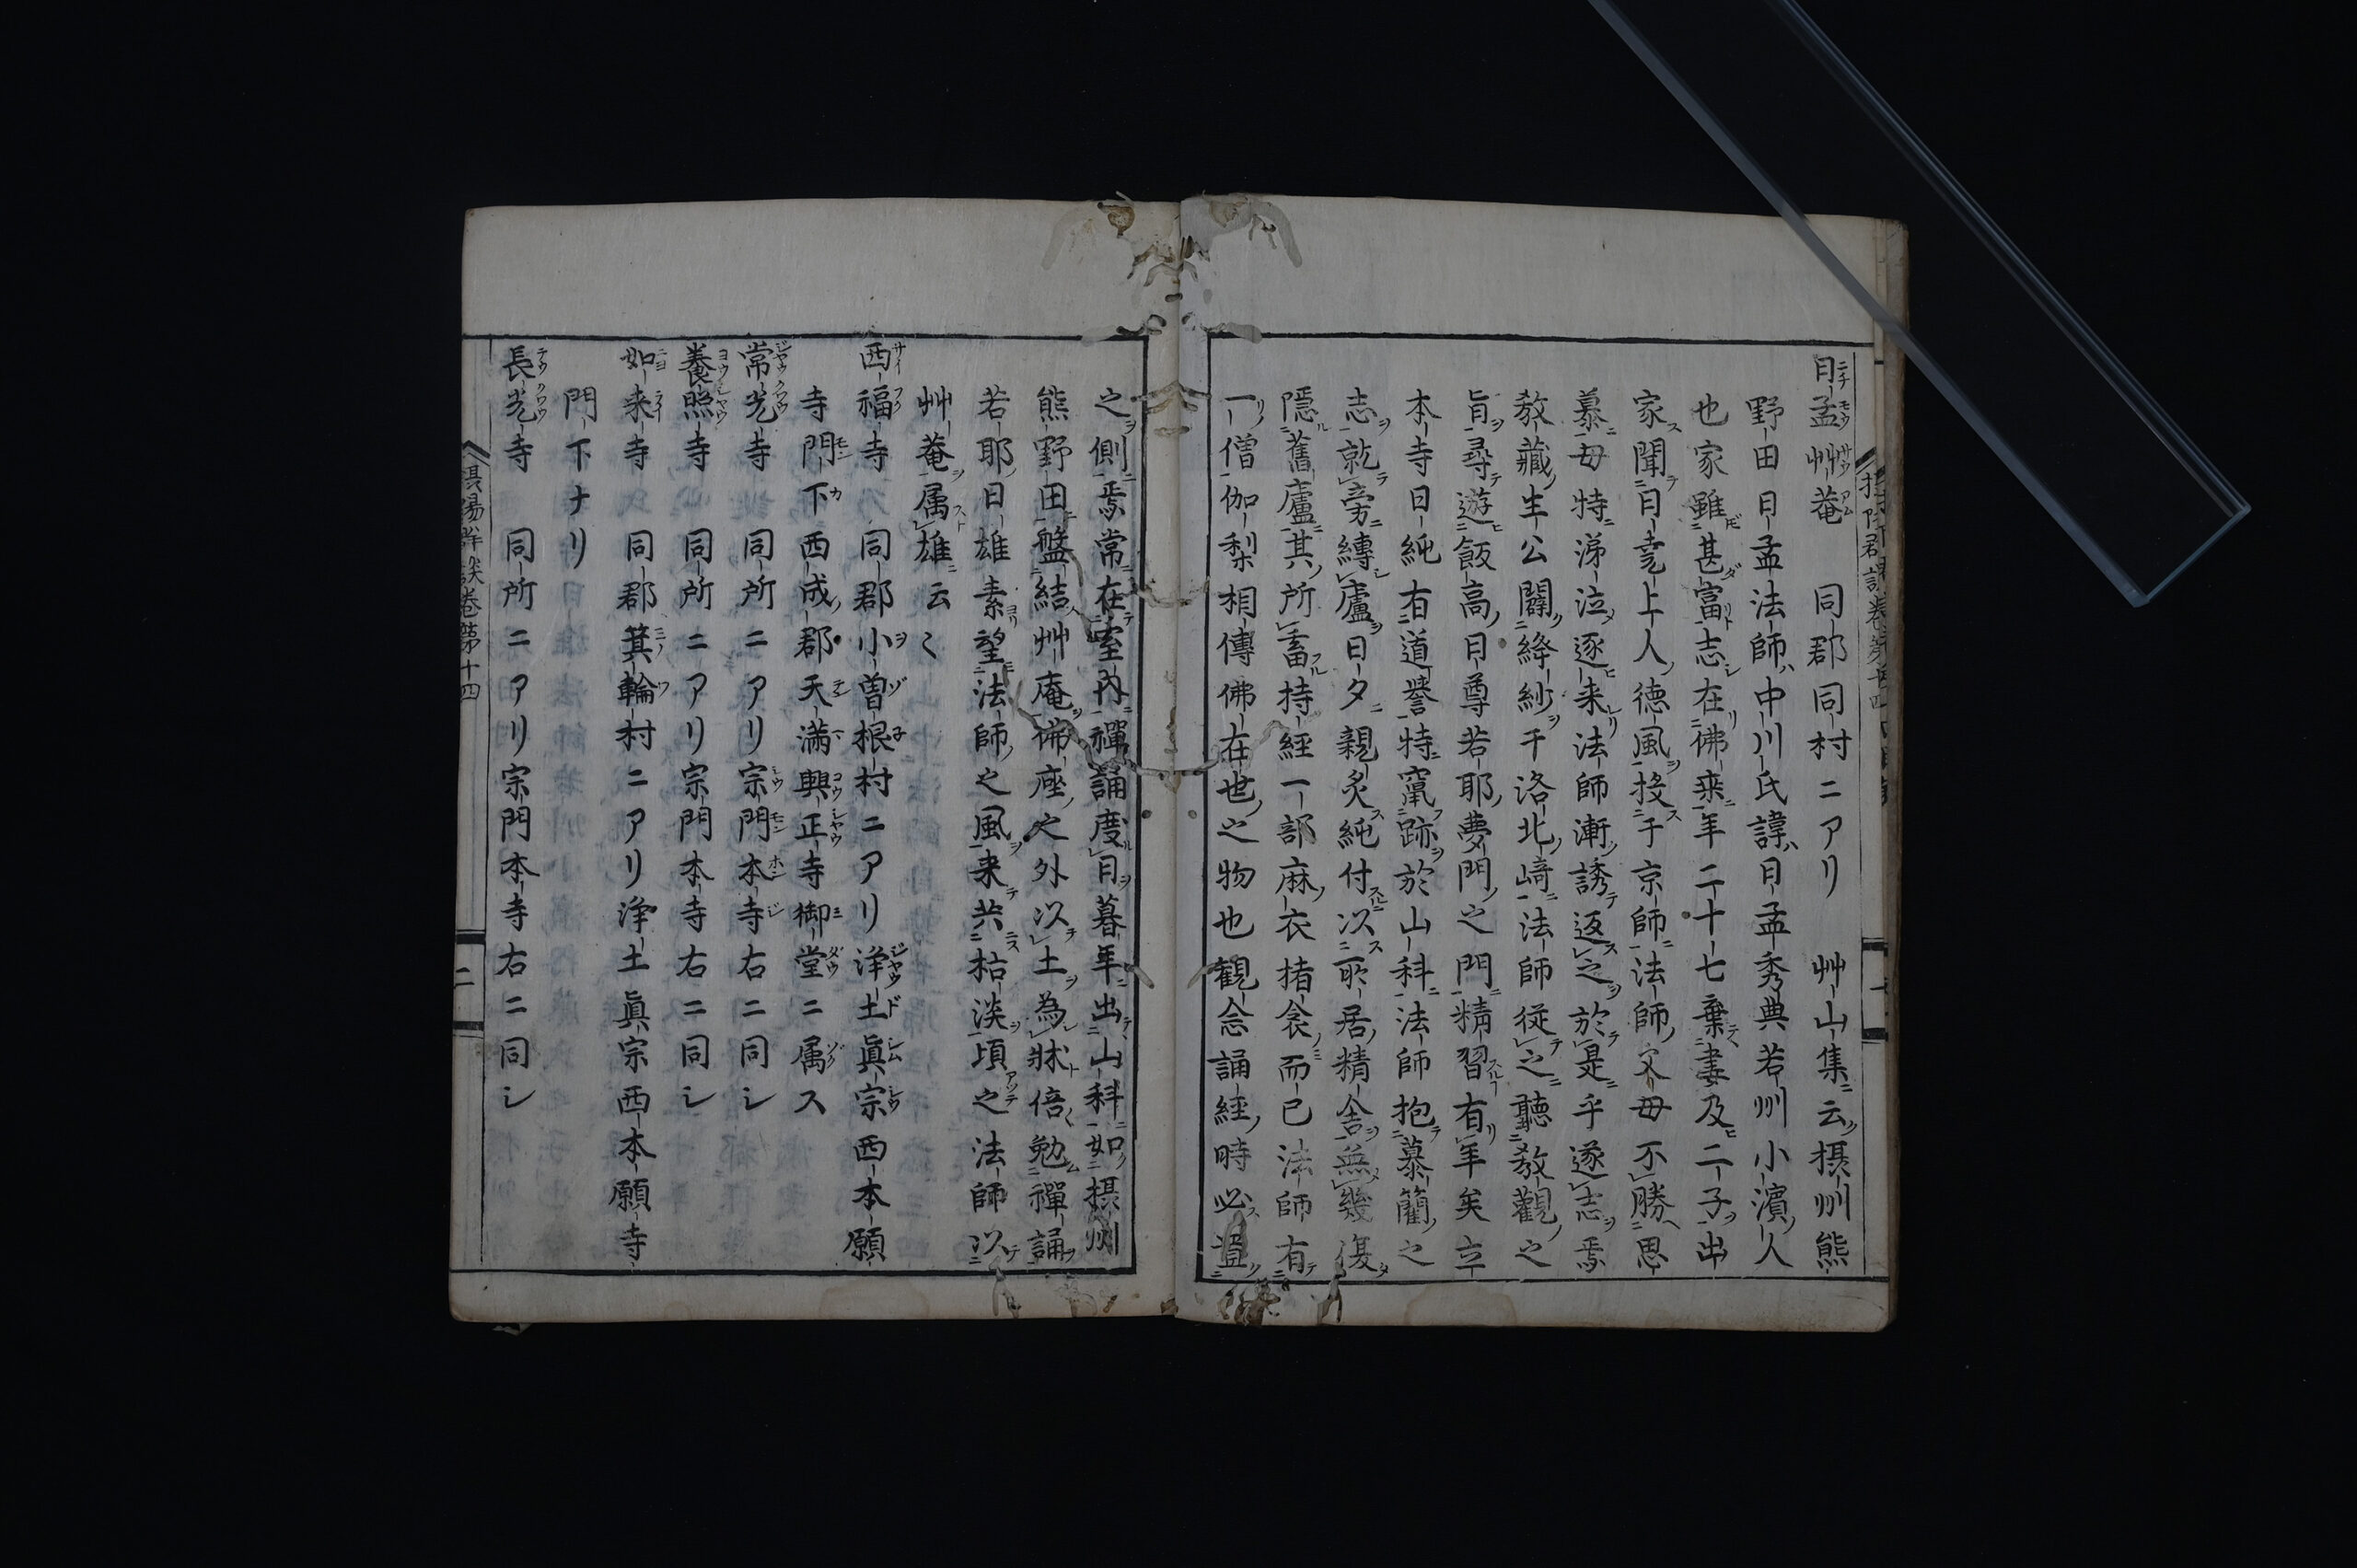 日孟艸菴　同郡同村ニアリ　艸山集云摂州熊
野田日孟法師中川氏諱日孟秀典若州小濱人
也家雖甚富志在佛乗年二十七棄妻及二子出
家聞日堯上人德風投于京師法師父母不勝思
慕母特涕泣逐来法師漸誘返之於是乎遂志焉
教藏主公闢絳紗于洛北﨑法師従之聽教觀之
旨尋遊飯高日尊若耶夢門之門精習有年矣立
本寺日純有道譽特竄跡於山科法師抱慕藺之
志就旁縳廬日夕親炙純付以所居精舎無幾復
隱舊廬其所畜持経一部麻衣楮衾而已法師有
一僧伽梨相傳佛在世之物也觀念誦経時必置
之側焉常在室内禪誦度日暮年出山科如摂州
熊野田盤結艸庵佛座之外以土為牀倍勉禪誦
若耶日雄素望法師之風来共枯淡頃之法師以
艸菴属雄云〱
西福寺　同郡小曽根村ニアリ浄土眞宗西本願
寺門下西成郡天満興正寺御堂ニ属ス
常光寺　同所ニアリ宗門本寺右ニ同シ
養照寺　同所ニアリ宗門本寺右ニ同シ
如来寺　同郡箕輪村ニアリ浄土眞宗西本願寺
門下ナリ
長光寺　同所ニアリ宗門本寺右ニ同シ
摂陽群談巻第十四
二